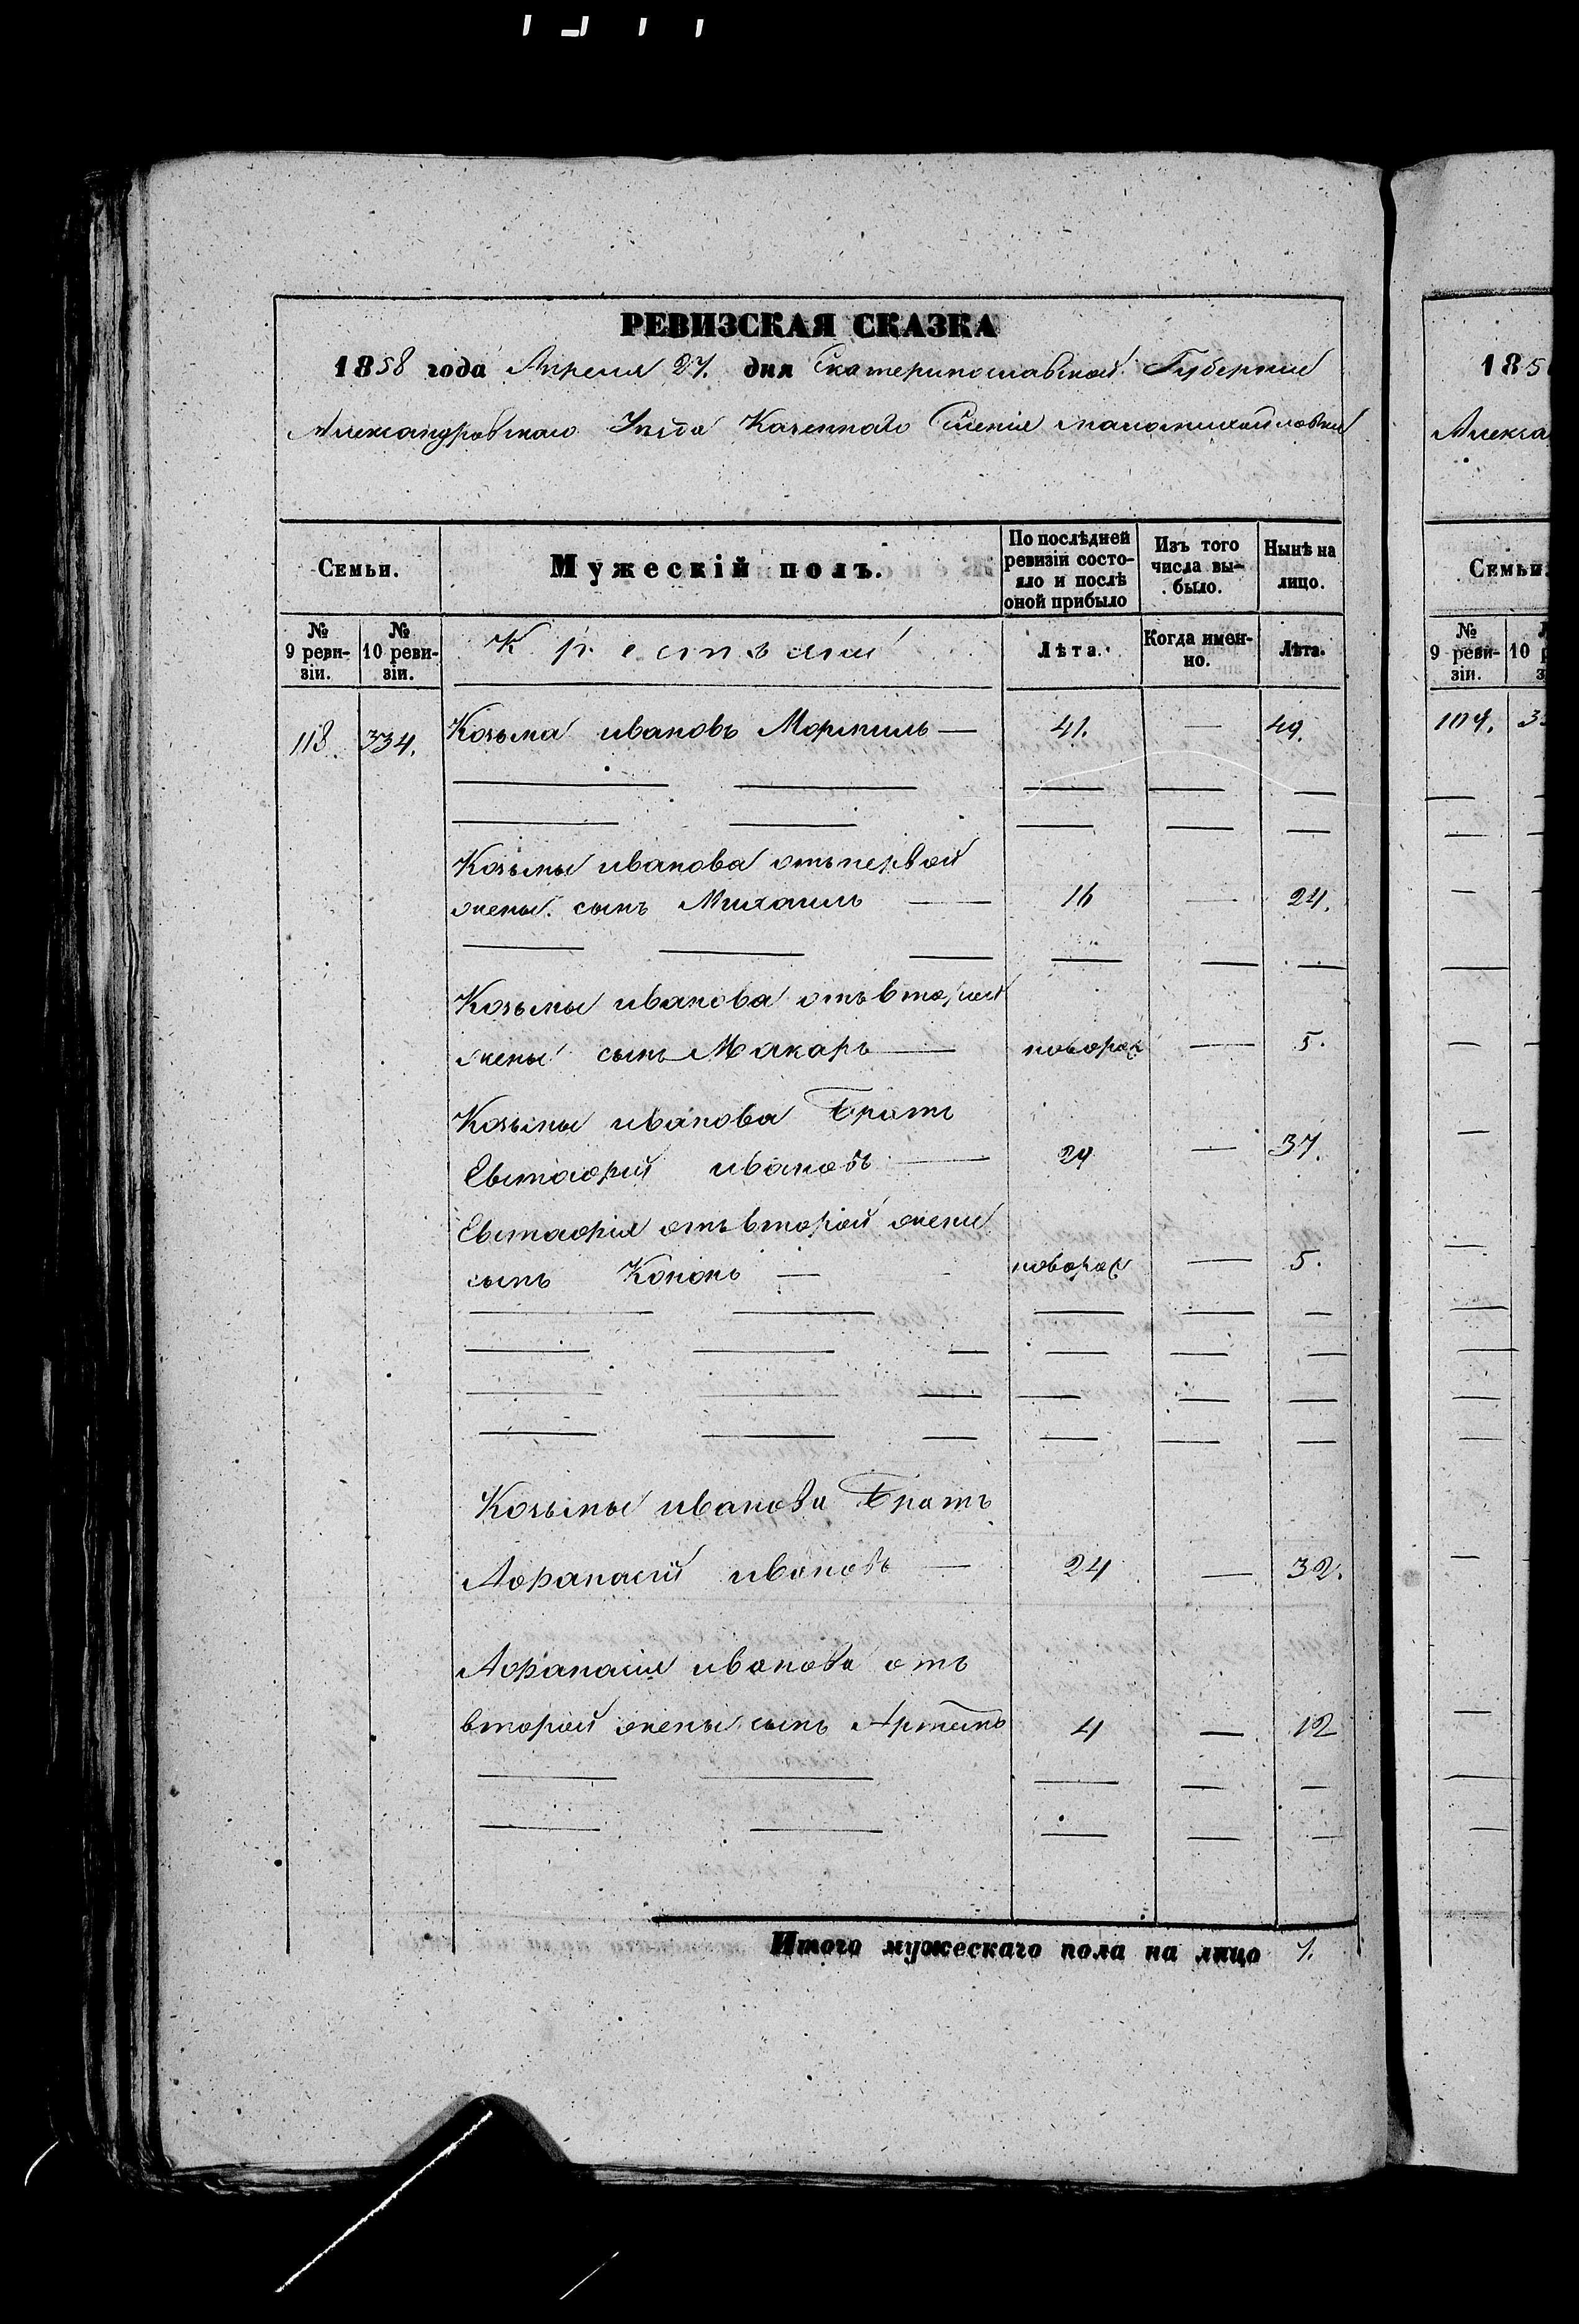 РЕВИЗСКАЯ СКАЗКА
1858 года Апреля 27. дня Екатеринославской Губернии
Александровскаго Уезда Казеннаго Селенія маломихайловки
Семьи.
Мужескій полъ.
По послѣдней ревизіи состояло и послѣ оной прибыло
Изъ того числа выбыло.
Нынѣ на лицо.
№ 9 ревизіи.
№ 10 ревизіи.
Крестьяне
Лѣта.
Когда именно.
Лѣта.
118 334. Козьма ивановъ — 41. — 49.
Козьмы иванова отъ первой
жены сынъ Михаилъ — 16 — 24.
Козьмы иванова отъ второй
жены сынъ Макаръ — новорож — 5.
Козьмы иванова Братъ
Евстафій ивановъ — 29 — 37.
Евстафія отъ второй жены
сынъ Кононъ — новорож — 5.
Козьмы иванова Братъ
Афанасій ивановъ — 24 — 32.
Афанасія иванова отъ
второй жены сынъ 4 — 12
Итого мужескаго пола на лицо 7.
185
Алекса
Семьи.
№ 9 ревизіи.
10
107. 3